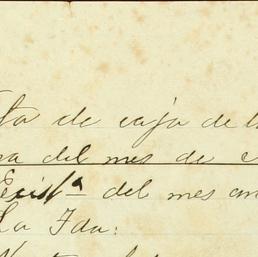 ta de caja de l
ra del mes de e
Exist.ª del mes an
La Ida: